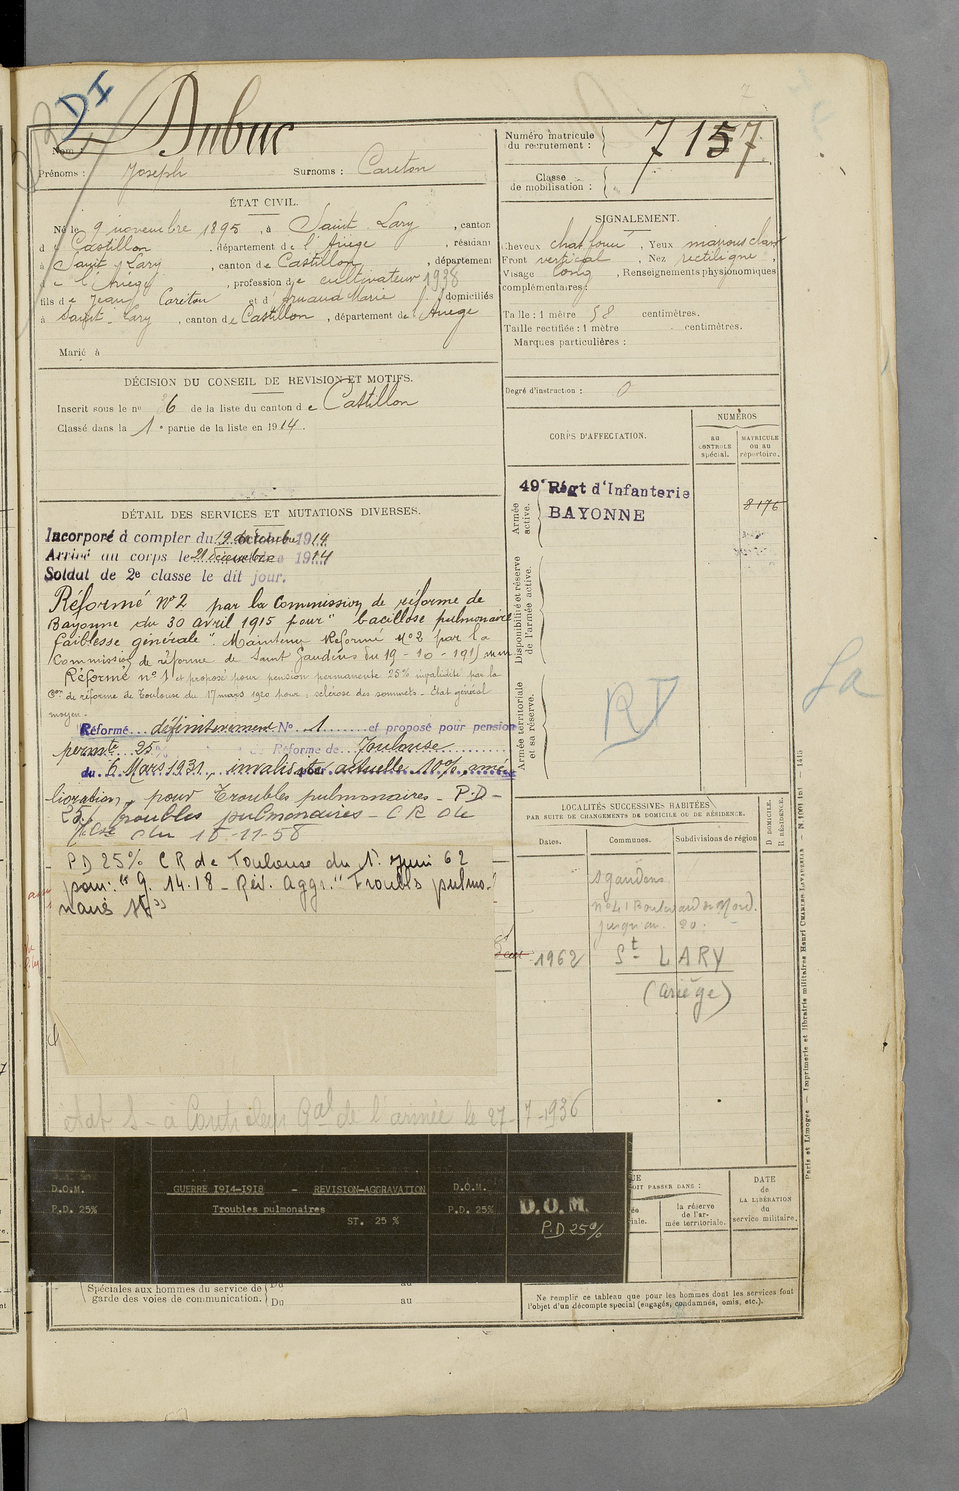 DI
Nom : Dubuc
Prénoms : Joseph Surnoms : Careton
Numéro matricule
du recrutement : 7157
Classe
de mobilisation :
ÉTAT CIVIL.
Né le 9 novembre 1895, à Saint Lary, canton
de Castillon, département de l'Ariège, résidant
à Saint Lary, canton de Castillon, département
de l'Ariège, profession de cultivateur 1938
fils de Jean Careton et d' Marie, domiciliés
à Saint-Lary, canton de Castillon, département de l'Ariège
Marié à
SIGNALEMENT.
Cheveux chat foncé, Yeux marrons clair
Front vertical, Nez rectiligne,
Visage long, Renseignements physionomiques
complémentaires :
Taille : 1 mètre 58 centimètres.
Taille rectifiée : 1 mètre centimètres.
Marques particulières :
DÉCISION DU CONSEIL DE REVISION ET MOTIFS.
Inscrit sous le no 6 de la liste du canton de Castillon
Classé dans la 1e partie de la liste en 1914.
Degré d'instruction : 0
CORPS D'AFFECTATION.
NUMÉROS
au
CONTROLE
spécial.
MATRICULE
ou au
répertoire.
Armée
active.
49e Régt d'Infanterie
BAYONNE
8176
Disponibilité et réserve
de l'armée active.
Armée territoriale
et sa réserve.
RT
La
DÉTAIL DES SERVICES ET MUTATIONS DIVERSES.
Incorporé à compter du 19 1914
Arrivé au corps le 21 décembre 1914
Soldat de 2e classe le dit jour.
Réformé No 2 par la Commission de réforme de
Bayonne du 30 avril 1915 pour "bacillose pulmonaire
faiblesse générale". Maintenu Réformé No 2 par la
Commission de réforme de Saint Gaudens du 19-10-1915
Réformé no 1 et proposé pour pension permanente 25% invalidité par la
Con de réforme de Toulouse du 17 mars 1920 pour : sclérose des sommets - Etat général
moyen.
Réformé définitivement No 1 et proposé pour pension
permte 25% de Réforme de Toulouse
du 6 Mars 1931, invalidité actuelle 10% amé-
lioration, pour troubles pulmonaires - P.D-
25% troubles pulmonaires - C R de
Tlse du 18-11-58
PD 25% C.R de Toulouse du 1er Juin 62
pour : "G. 14.18 - Rév. Aggr." Troubles pulmo-
naires St"
LOCALITÉS SUCCESSIVES HABITÉES
PAR SUITE DE CHANGEMENTS DE DOMICILE OU DE RÉSIDENCE.
Dates. Communes. Subdivisions de région
D. DOMICILE.
R. RÉSIDENCE.
St gaudens
no 41 Boulevard du Nord.
jusqu'au 20.
1962 St LARY
(Ariège)
Gal de l'armée le 27-7-1936
D.O.M. GUERRE 1914-1918 - REVISION-AGGRAVATION D.O.M. D.O.M.
P.D. 25% Troubles pulmonaires P.D. 25% P.D 25%
ST. 25 %
OIT PASSER DANS :
la réserve
de l'ar-
mée territoriale.
DATE
de
LA LIBÉRATION
du
service militaire.
Spéciales aux hommes du service de
garde des voies de communication.
Du au
Du au
Ne remplir ce tableau que pour les hommes dont les services font
l'objet d'un décompte spécial (engagés, condamnés, omis, etc.).
Paris et Limoges — Imprimerie et librairie militaires Henri CHARLES-LAVAUZELLE